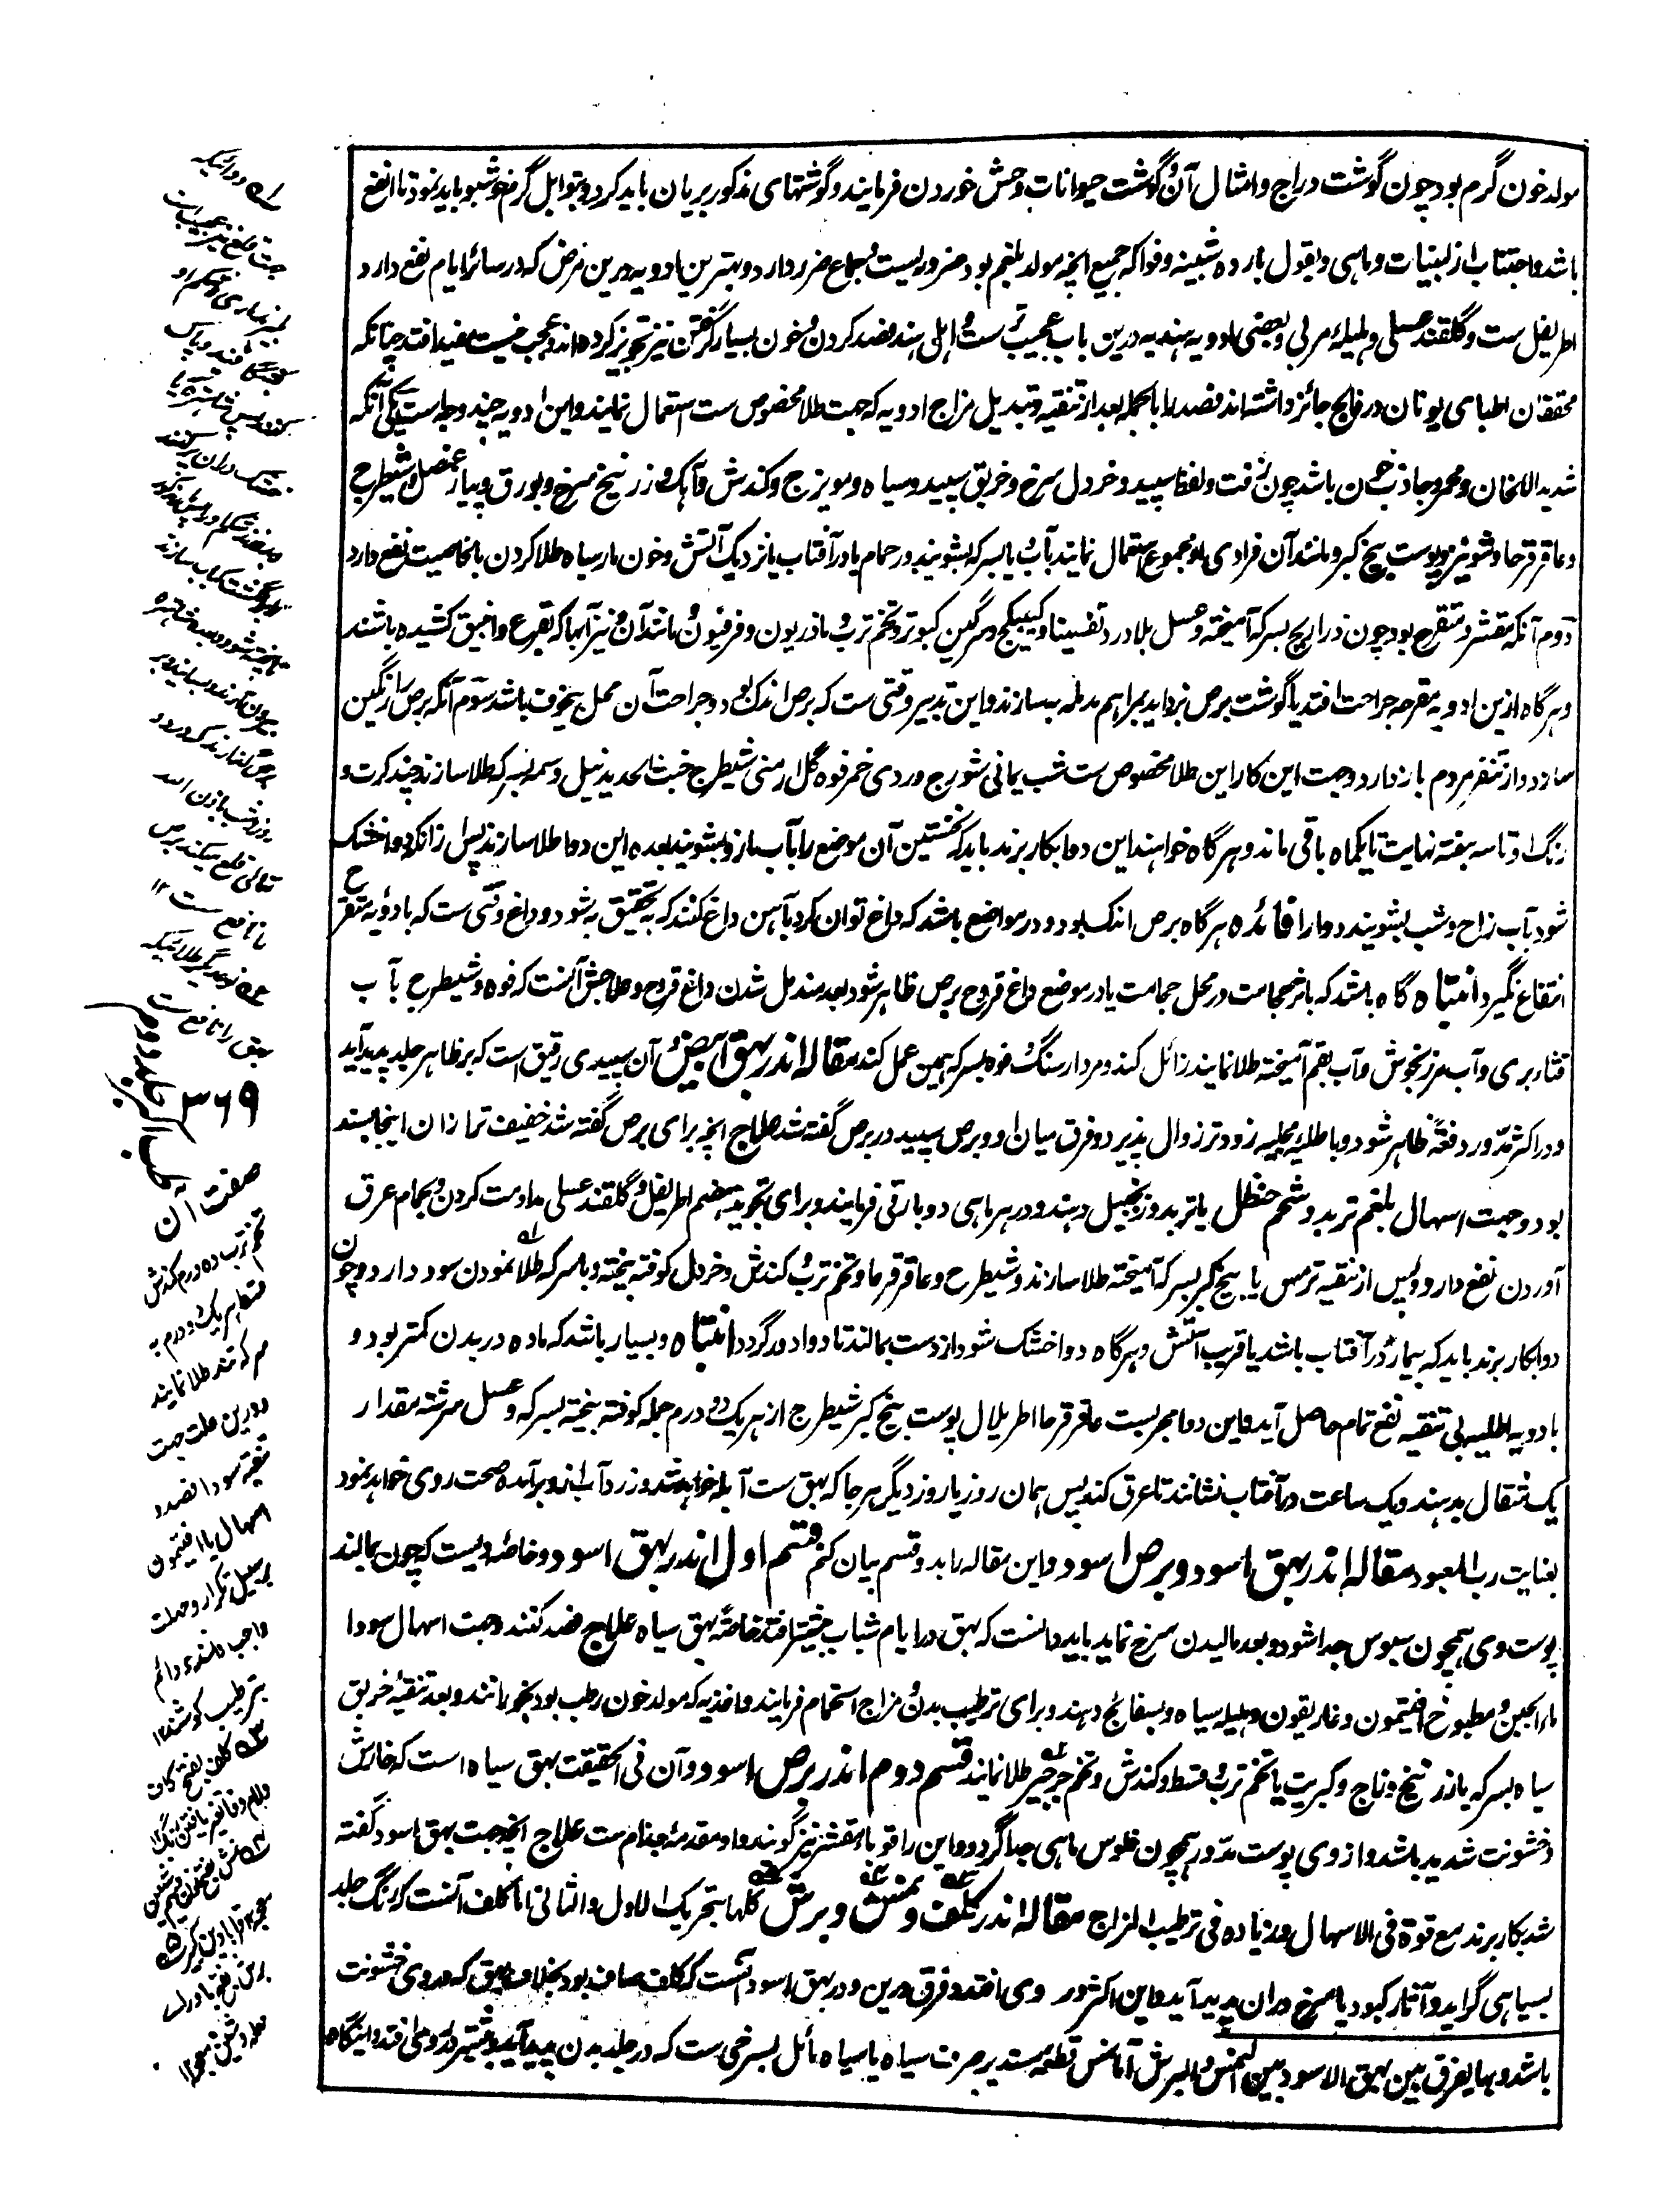 مولد خون گرم بود چون گوشت دراج و امثال آن و گوشت حیوانات وحش خوردن فرمایند و گوشتهای مذکور بریان باید کرد و بتوابل گرم خوشبو باید نمود تا انفع
باشد و اجتناب از لبنیات و ماهی و بقول بارده شبینه و فواکه جمیع انچه مولد بلغم بود ضروریست و جماع ضرر دارد و بهترین ادویه درین مرض که در سائر ایام نفع دارد
اطریفل ست و گلقند عسلی و هلیله مربی و بعضی ادویه هندیه درین باب عجیب ست و اهل هند فصد کردن و خون بسیار گرفتن نیز تجویز کرده اند و عجب نیست مفید افتد چنانکه
محققان اطبای یونان در فالج جائز داشته اند فصد را بالجمله بعد از تنقیه و تبدیل مزاج ادویه که جهت طلا مخصوص ست استعمال نمایند و این ادویه چند وجه است یکی آنکه
شدید الاسخان و محمر و جاذب خون باشد چون زفت و نفط سپید و خردل سرخ و خربق سپید و سیاه و مویزج و کندش و آهک و زرنیخ سرخ و بورق و پیاز عنصل و شیطرج
و عاقرقرحا و شونیز و پوست بیخ کبر و مانند آن فرادی یا مجموع استعمال نمایند بآب یا بسرکه بشویند در حمام یا در آفتاب یا نزدیک آتش و خون مار سیاه طلا کردن بالخاصیت نفع دارد
دوم آنکه مقشر و متقرح بود چون ذراریح بسرکه آمیخته و عسل بلادر و تفسیا و کبیکج و سرگین کبوتر و تخم ترب و ماذریون و فرفیون و مانند آن و نیز آبها که بقرع و انبیق کشیده باشند
و هرگاه ازین ادویه مقرحه جراحت افتد یا گوشت برص بزداید بمراهم مدمله به سازند و این تدبیر وقتی ست که برص اندک بود و جراحت آن محل بیخوف باشد سوم آنکه برص را رنگین
سازد و از تنفر مردم باز دارد و جهت این کار این طلا مخصوص ست شب یمانی شورج دردی خمر فوه گل ارمنی شیطرج خبث الحدید نیل وسمه بسرکه طلا سازند چند کرت و
رنگ او تا سه هفته نهایت تا یکماه باقی ماند و هرگاه خواهند این دوا بکار برند باید که نخستین آن موضع را بآب مازو بشویند بعده این دوا طلا سازند پس از آنکه دوا خشک
شود بآب زاج و شب بشویند دوا را فائده هرگاه برص اندک بود و در مواضع باشد که داغ توان کرد بآهن داغ کنند که به تحقیق به شود و داغ وقتی ست که بادویه متقرح
انتفاع نگیرد انتباه گاه باشد که باثر حجامت در محل حجامت یا در موضع داغ قروح برص ظاهر شود بعد مندمل شدن داغ قروح و علاجش آنست که فوه و شیطرج بآب
قثاء بری و آب مرزنجوش و آب بقم آمیخته طلا نمایند زائل کند و مردار سنگ و فوه بسرکه همین عمل کند مقاله اندر بهق ابیض آن سپیدی رقیق است که بر ظاهر جلد پدید آید
و در اکثر مدور و دفعةً ظاهر شود و با طلیه مجلیه زودتر زوال پذیرد و فرق میان او و برص سپید در برص گفته شد علاج انچه برای برص گفته شد خفیف تر ازان اینجا بسند
بود و جهت اسهال بلغم تربد و شحم حنظل یا تربد و زنجبیل دهند و در هر ماهی دو بار قی فرمایند و برای تجوید هضم اطریفل و گلقند عسلی مداومت کردن و بحمام عرق
آوردن نفع دارد و پس از تنقیه ترمس یا بیخ کبر بسرکه آمیخته طلا سازند و شیطرج و عاقرقرحا و تخم ترب و کندش و خردل کوفته بیخته و با سرکه طلا نمودن سود دارد و چون
دوا بکار برند باید که بیمار در آفتاب باشد یا قریب آتش و هرگاه دوا خشک شود از دست بمالند تا دوا دور گردد انتباه و بسیار باشد که ماده در بدن کمتر بود و
بادویه اطلیه بی تنقیه نفع تمام حاصل آید و این دوا مجربست عاقرقرحا اطریلال پوست بیخ کبر شیطرج از هر یک دو درم جمله کوفته بیخته بسرکه و عسل سرشته مقدار
یک مثقال بدهند و یک ساعت در آفتاب نشانند تا عرق کند پس همان روز یا روز دیگر هر جا که بهق ست آبله خواهد شد و زردآب ازو برآمده صحت روی خواهد نمود
بعنایت رب المعبود مقاله اندر بهق اسود و برص اسود و این مقاله را بدو قسم بیان کنم قسم اول اندر بهق اسود و خاصه ویست که چون بمالند
پوست وی همچون سبوس جدا شود و بعد مالیدن سرخ نماید باید دانست که بهق در ایام شباب بیشتر افتد خاصةً بهق سیاه علاج فصد کنند و جهت اسهال سودا
ماء الجبن و مطبوخ افتیمون و غاریقون و هلیله سیاه و بسفائج دهند و برای ترطیب بدن و مزاج استحمام فرمایند و اغذیه که مولد خون رطب بود بخورانند و بعد تنقیه خربق
سیاه بسرکه یا زرنیخ و زاج و کبریت یا تخم ترب و قسط و کندش و تخم جرجیر طلا نمایند قسم دوم اندر برص اسود و آن فی الحقیقت بهق سیاه است که خارش
و خشونت شدید باشد و از وی پوست مدور همچون فلوس ماهی جدا گردد و این را قوبای متقشر نیز گویند و او مقدمه جذام ست علاج انچه جهت بهق اسود گفته
شد بکار برند مع قوة فی الاسهال و زیاده فی ترطیب المزاج مقاله اندر کلف و نمش و برش کلها بتحریک الاول و الثانی اما کلف آنست که رنگ جلد
بسیاهی گراید و آثار کبود یا سرخ دران پدید آید و این اکثر در روی افتد و فرق درین و در بهق اسود آنست که کلف صاف بود بخلاف بهق که در وی خشونت
باشد و بها یفرق بین بهق الاسود و بین النمش و البرش اما نمش نقطه مستدیر صرف سیاه یا سیاه مائل بسرخی ست که در جلد بدن پدید آید و بیشتر در رو می افتد و اینگاه
نافع ست ۱۲
بهق را نافع ست
۳۶۹
طب اکبر جلد دوم
صفت آن
تخم ترب ده درم کندش
قسط هر یک دو درم به
سرکه تر طلا نمایند
درین علت جهت
تنقیه سودا فصد و
اسهال با افتیمون
بر سبیل تکرار و مهلت
واجب دانند و دائم
بترطیب کوشند ۱۲